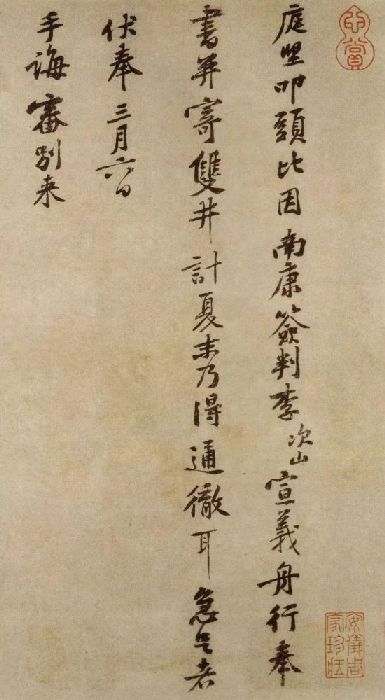 庭堅叩頭比因南康簽判李次山宣義舟行奉
書并寄雙井計夏末乃得通徹耳急足者
伏奉三月六日
手誨審別來
心賞
安儀周家珍藏